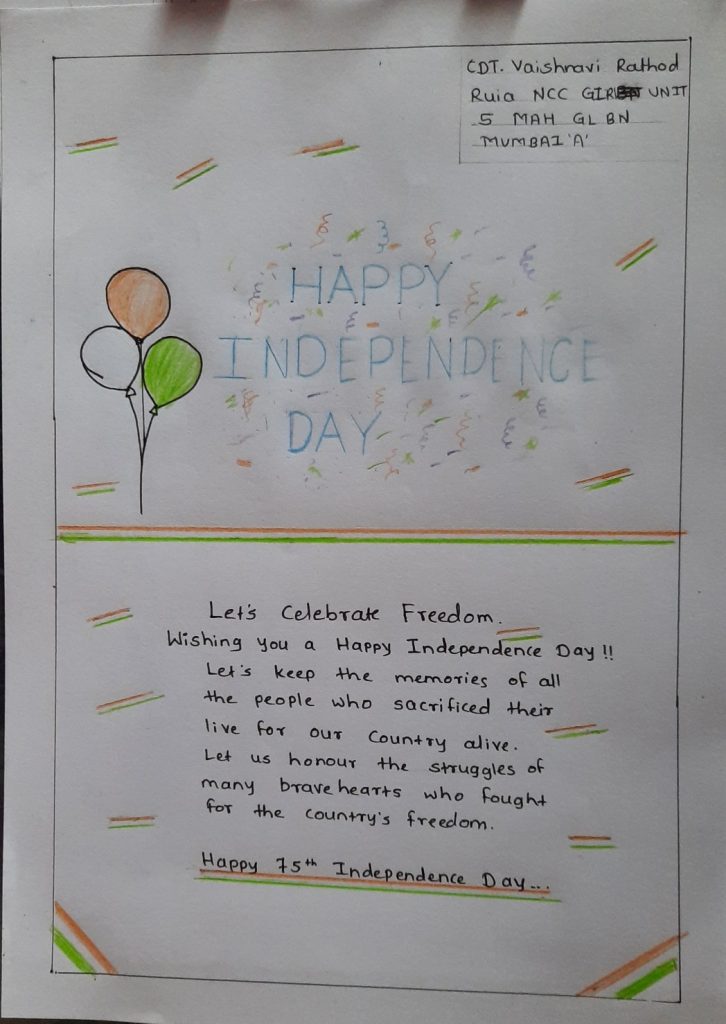 CDT. Vaishnavi Rathod
Ruia NCC GIRL UNIT
5 MAH GL BN
MUMBAI 'A'
HAPPY
INDEPENDENCE
DAY
Let's Celebrate Freedom.
Wishing you a Happy Independence Day!!
Let's keep the memories of all
the people who sacrificed their
live for our Country alive.
Let us honour the struggles of
many brave hearts who fought
for the country's freedom.
Happy 75th Independence Day...